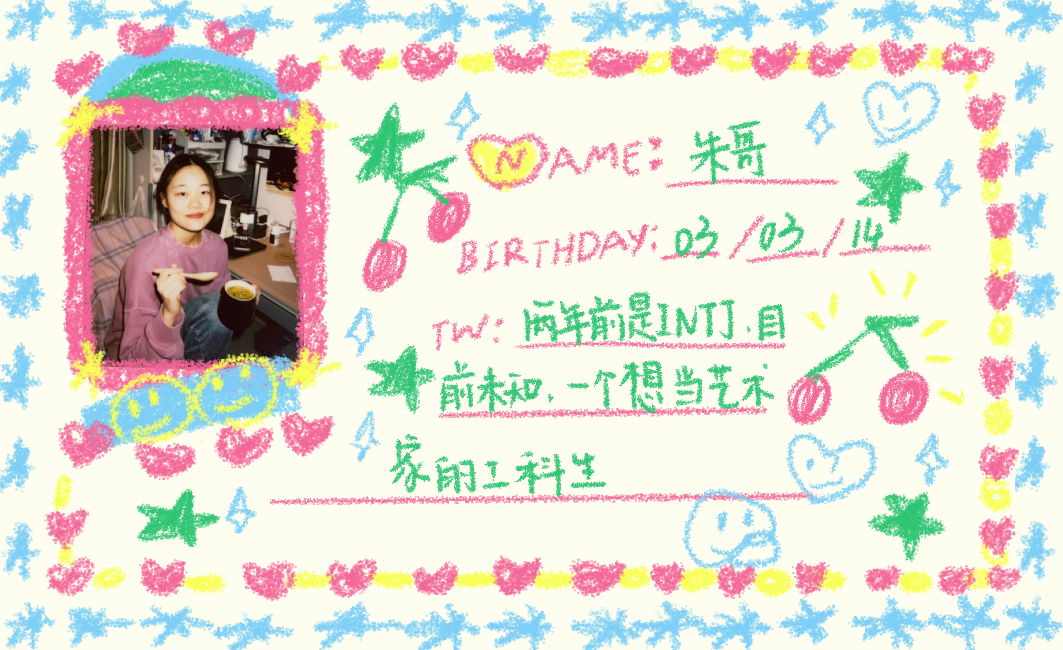 NAME: 朱哥
BIRTHDAY: 03/03/14
TW: 两年前是INTJ.目
前未知.一个想当艺术
家的工科生